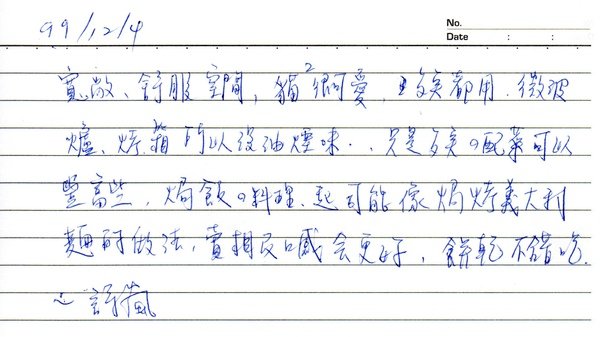 99/12/4
No.
Date : :
寬敞、舒服空間,貓2很可愛,主餐都用.微波
爐、烤箱所以沒油煙味..只是主餐の配菜可以
豐富些,焗飯の料理.起司能像焗烤義大利
麵的做法,賣相及口感会更好,餅乾不錯吃.